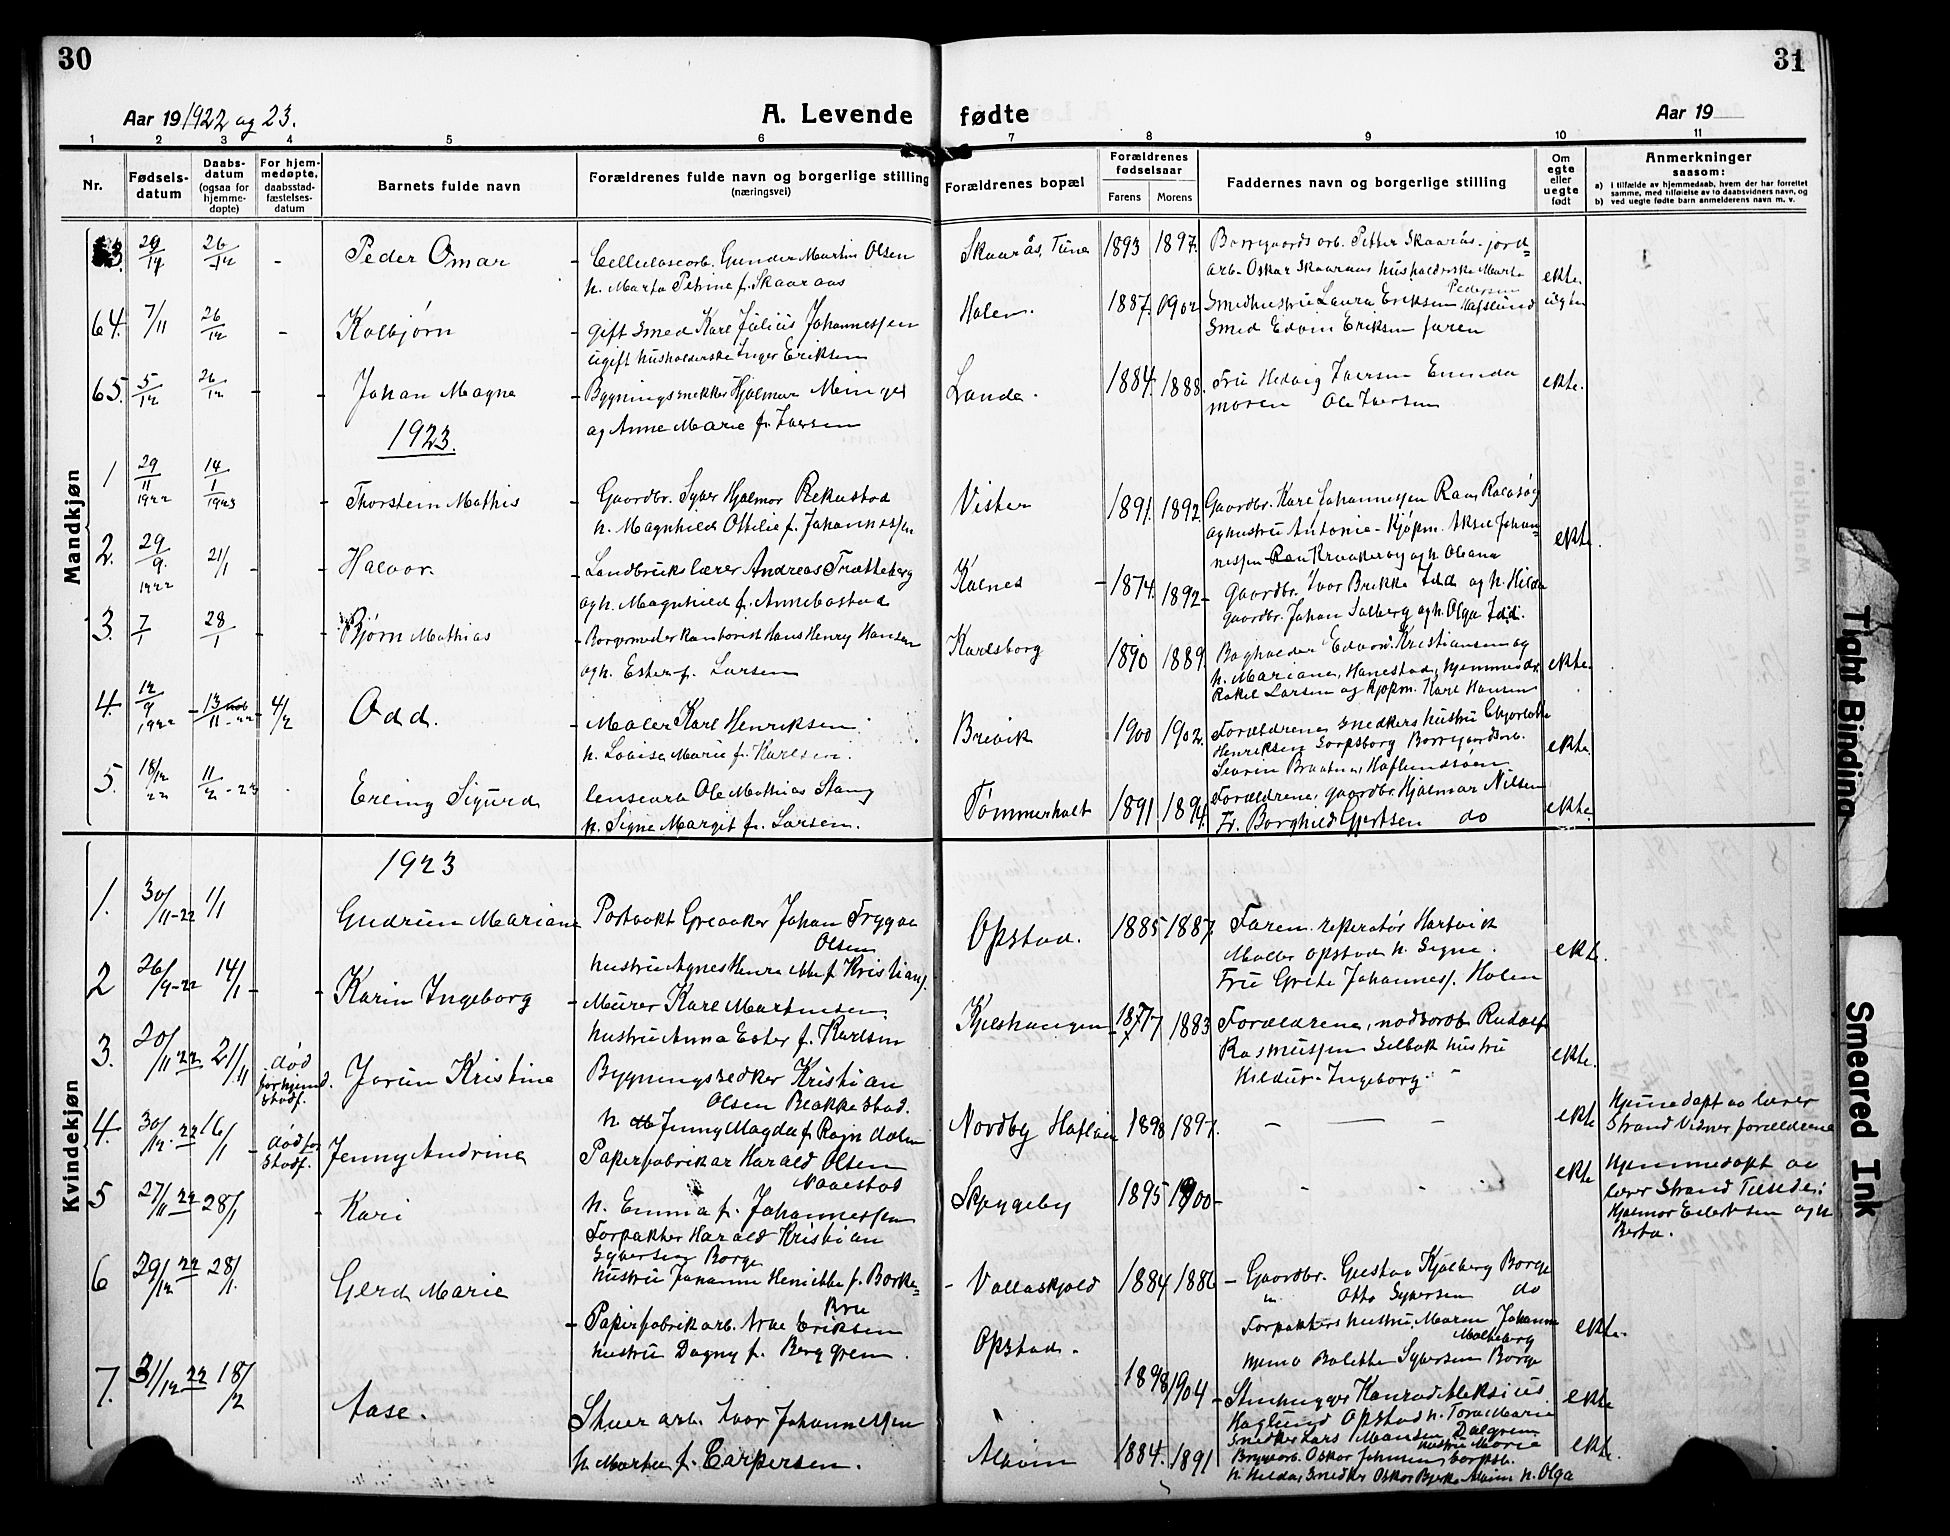 30
31
Aar 19 1922 og 23.
A. Levende fødte
Aar 19
1 2 3 4 5 6 7 8 9 10 11
Nr.
Fødsels-
datum
Daabs-
datum
(ogsaa for
hjemme-
døpte)
For hjem-
medøpte,
daabsstad-
fæstelses-
datum
Barnets fulde navn
Forældrenes fulde navn og borgerlige stilling
(næringsvei)
Forældrenes bopæl
Forældrenes
fødselsaar
Farens Morens
Faddernes navn og borgerlige stilling
Om
egte
eller
uegte
født
Anmerkninger
saasom:
a) i tilfælde av hjemmedaab, hvem der har forrettet
samme, med tilføielse av to daabsvidners navn, og
b) ved uegte fødte barn anmelderens navn m. v.
Mandkjøn
26/12 - Peder Omar - Cellulosearb. Gunder Martin Olsen
h. Marta Petrine f. Skaaraas
Skaarås, Tune 1893 1897. Borregaards arb. Petter Skaarås - jord=
arb. Oskar Skaaraas husholderske Marta
Pedersen
ekte.
64. 7/11 26/12 - Kolbjørn gift smed Karl Julius Johannessen
ugift husholderske Inger Eriksen
Holen. 1887. 1902 Smedhustru Laura Eriksen Hafslund
Smed Edvin Eriksen faren
65. 5/12 26/12 - Johan Magne - Bygningssnekker Hjalmar Minge
og Anne Marie f. Iversen
Lande. 1884. 1888. Fru Hedvig Iversen
moren Ole Iversen
ekte.
1923.
1 29/11 1922 14/1 1923 - Thorstein Mathis - Gaardbr. Syver Hjalmar Rekustad
h. Magnhild Ottilie f. Johannessen
Vister 1891. 1892. Gaardbr. Karl Johannessen
og hustru Antonie - Kjøpm. Johan=
nessen og h. Oleana
ekte.
2. 29/9. 1922 21/1 - Halvor - Landbrukslærer Andreas Trætteberg
og h. Magnhild f. Annebostad
Kalnes - 1874. 1892 - Gaardbr. Ivor Brekke Idd og h. Hilda
gaardbr. Johan Solberg og h. Olga Idd.
3. 7/1 28/1 - Bjørn Mathias - Borgermesterkontorist Hans Henry Hansen
og h. Ester f. Larsen
Karlsborg 1890 1889. Bogholder Edvard Kristiansen og
h. Mariane, Hanestad, hjemmevær.
Rakel Larsen og kjøpm. Karl Hansen
ekte.
4. 12/9 1922 - 13/11 - 22 - 4/2 Odd. - Maler Karl Henriksen.
h. Lovise Marie f. Karlsen.
Brevik 1900 1902. Forældrene, snedkers hustru Charlotte
Henriksen Sarpsborg Borregaardsarb.
Severin Braaten, Hafslundsøen
ekte.
5. 18/12 22 11/2 - 23 Erling Sigurd lensearb Ole Mathias Stang
h. Signe Margit f. Larsen.
Tømmerholt 1891 1894. Forældrene, gaardbr. Hjalmar Nilsen
Fr. Borghild Gjertsen do
ekte.
Kvindekjøn
1923
1. 30/11-22 1/1 Gudrun Mariane Postvakt Greaaker Johan Trygve
Olsen
hustru Agnes Henriette f. Kristians.
Opstad. 1885 1887. Faren. reperatør Hartvik
Møller Opstad h. Signe.
Fru Grete Johanness. Holen
ekte.
2 26/9-22 14/1 - Karin Ingeborg - Murer Karl Martinsen
hustru Anna Ester f. Karlsen
Kjelshaugen 1877 1883 Forældrene, Rudolf
Rasmussen Selbak hustru
Hildur - Ingeborg -
ekte.
3. 20/11 22 21/11 død
før hjemd.
stadf.
Jorun Kristine Bygningssnedker Kristian
Olsen Blakkestad.
h. Jenny Magda f. Rogndalen
Nordby Hafslun 1898 1897. - - - ekte Hjemedøpt av lærer
Strand Vidner forældrene
4. 30/12. 22 16/1 - død før
stadf.
Jenny Andrine Papirfabrikar Harald Olsen
Navestad
h. Emma f. Johannessen
Skjeggeby 1895 1900 - - - - ekte Hjemmedøpt av
lærer Strand Tilstede:
Hjalmar Eilertsen og h
Berta.
5 27/11 22 28/1 Kari Forpakter Harald Kristian
Syversen Borge
hustru Johanne Henriette f. Borke=
Bru
- Vallaskjold 1884 1886 - Gaardbr. Gustav Kjølberg Borge
" Otto Syversen do
Forpakters hustru Maren Johanne
hjem. Bolette Syversen Borge
ekte.
6 29/12 22 28/1. Gerd Marie - Papirfabrikarb. Arne Eriksen
hustru Dagny f. Berggren.
Opstad. 1898 1904 - Stenhugger Konrad Aleksius
Haglund Opstad h. Tora Marie
Snedker Lars Monsen, Dalgren
hustru Marie
ekte
7. 31/12 22 18/2 Aase. Skuer arb. Ivor Johannessen
h. Marta f. Carpersen.
Alvim 1884. 1891 Bryggearb. Oskar Johnsen, Sarpsb.
h. Hilda, Snedker Oskar Bjerke Alvim h. Olga
ekte.
Tight Binding
Smeared Ink